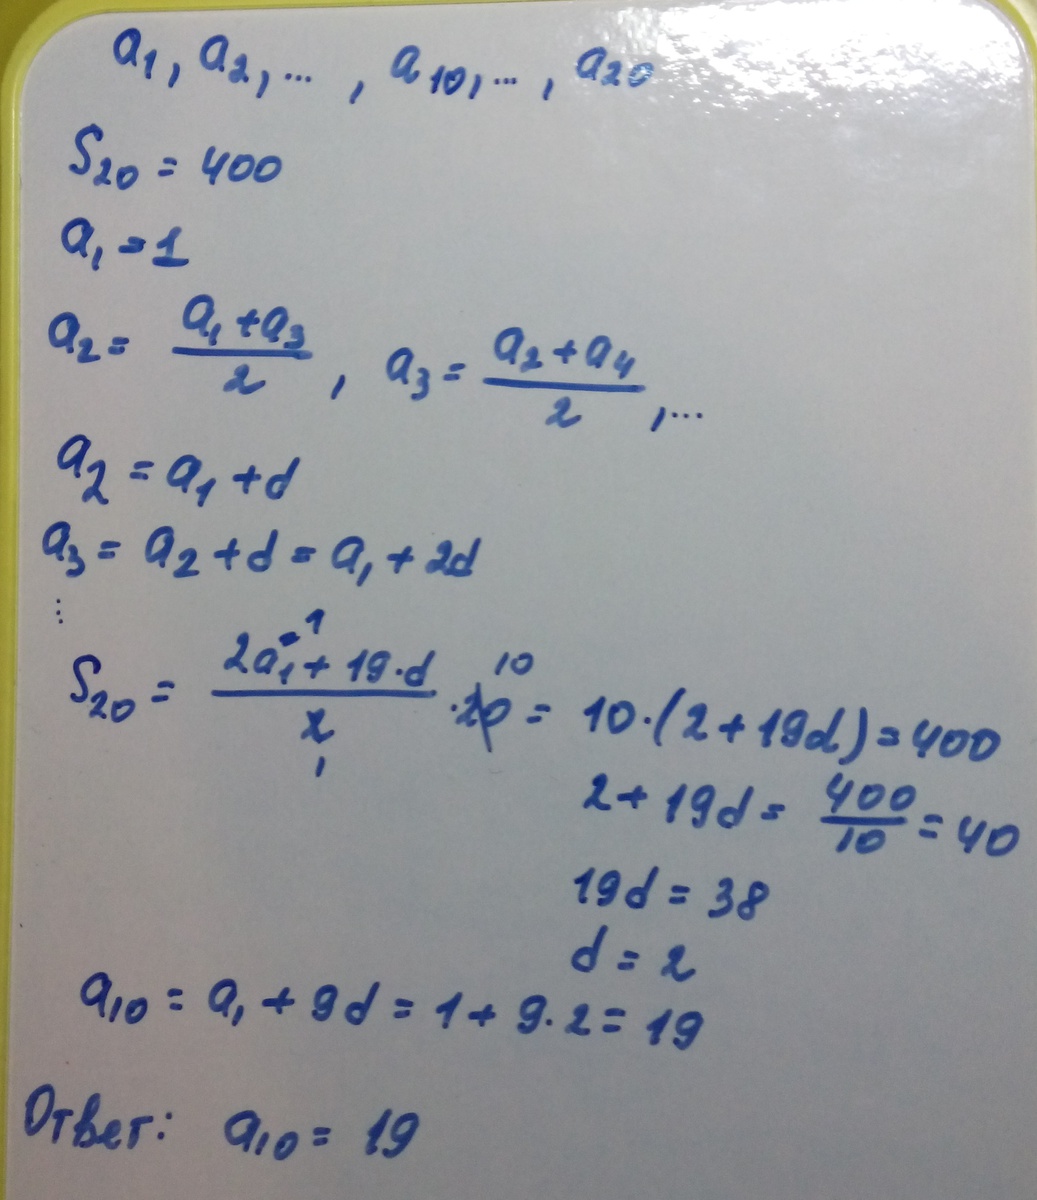 a₁, a₂, ... , a₁₀, ... , a₂₀
S₂₀ = 400
a₁ = 1
a₂ = (a₁ + a₃)/2 , a₃ = (a₂ + a₄)/2 , ...
a₂ = a₁ + d
a₃ = a₂ + d = a₁ + 2d
⋮
S₂₀ = (2a₁⁼¹ + 19·d)/2 · 20 = 10·(2 + 19d) = 400
1 10
2 + 19d = 400/10 = 40
19d = 38
d = 2
a₁₀ = a₁ + 9d = 1 + 9·2 = 19
Ответ: a₁₀ = 19